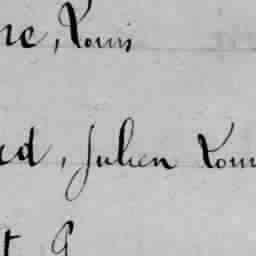 ne, Louis
rd, Julien Loui
t G